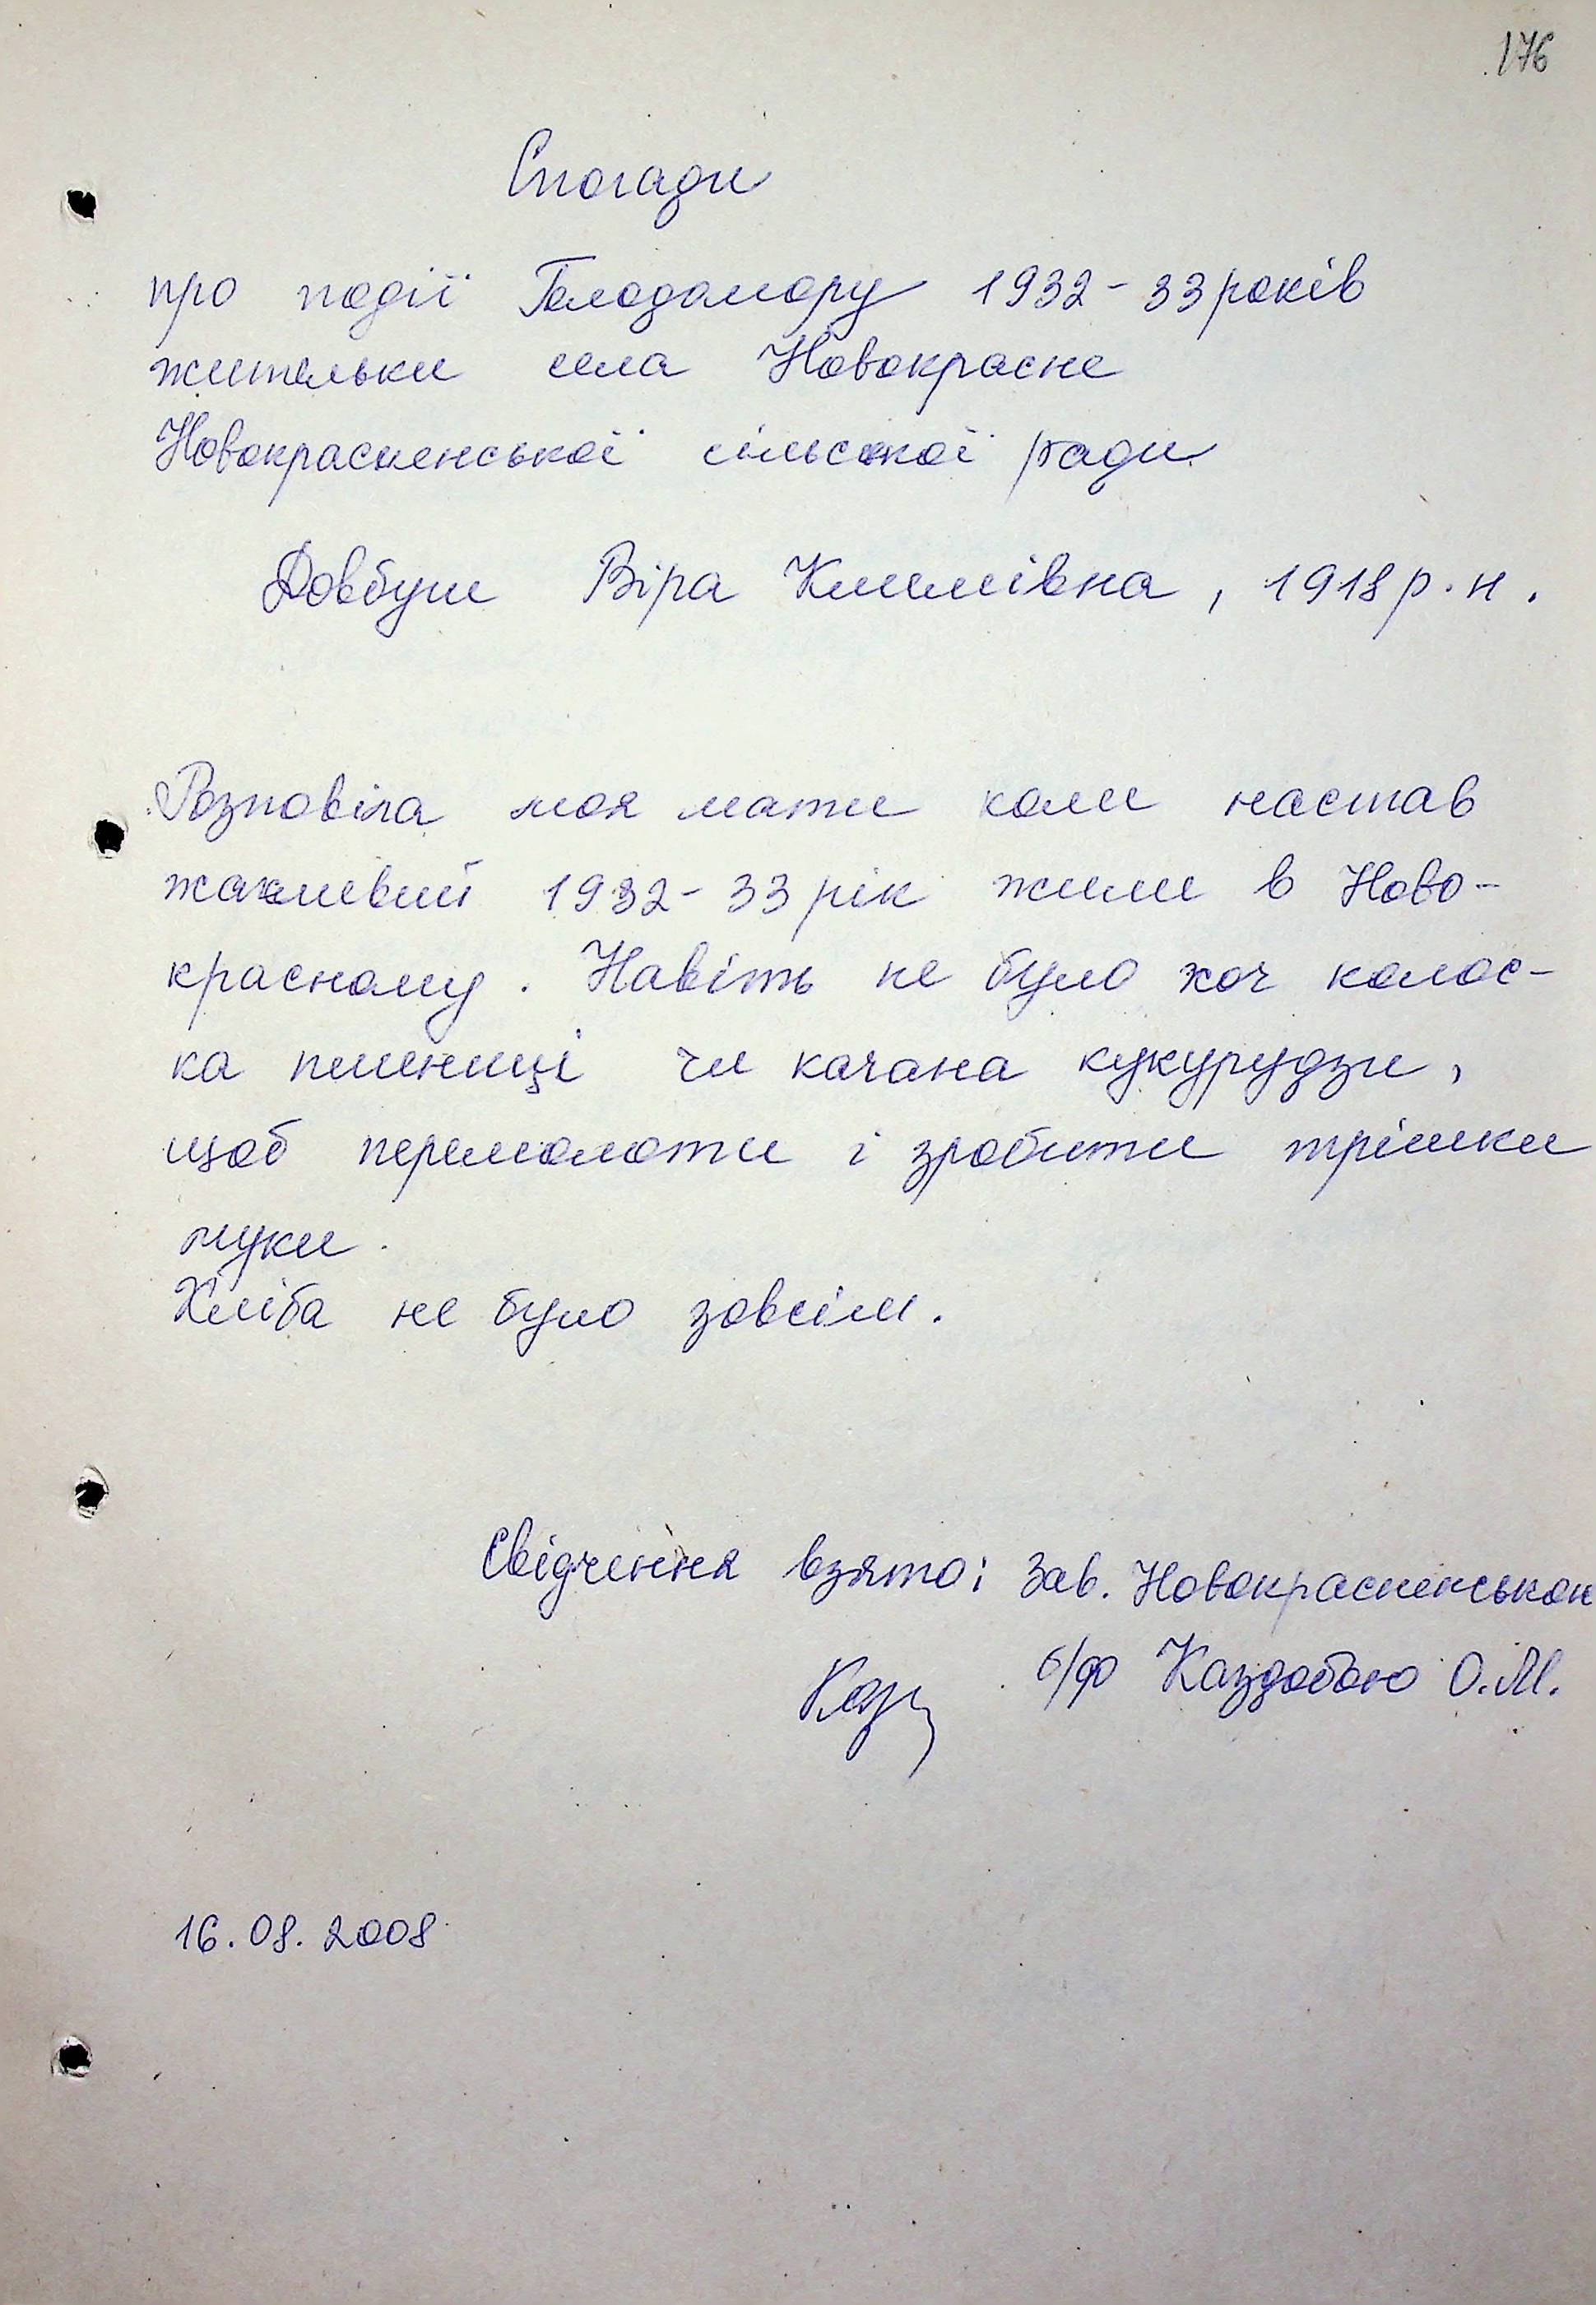 176
Спогади
про події Голодомору 1932-33 років
жительки села Новокрасне
Новокрасненської сільської ради
Довбуш Віра Климівна, 1918 р.н.
Розповіла моя мати коли настав
жахливий 1932-33 рік жили в Ново-
красному. Навіть не було хоч колос-
ка пшениці чи качана кукурудзи,
щоб перемолоти і зробити трішки
муки.
Хліба не було зовсім.
Свідчення взято: Зав. Новокрасненською
б/ф Каздобою О.М.
16.08.2008